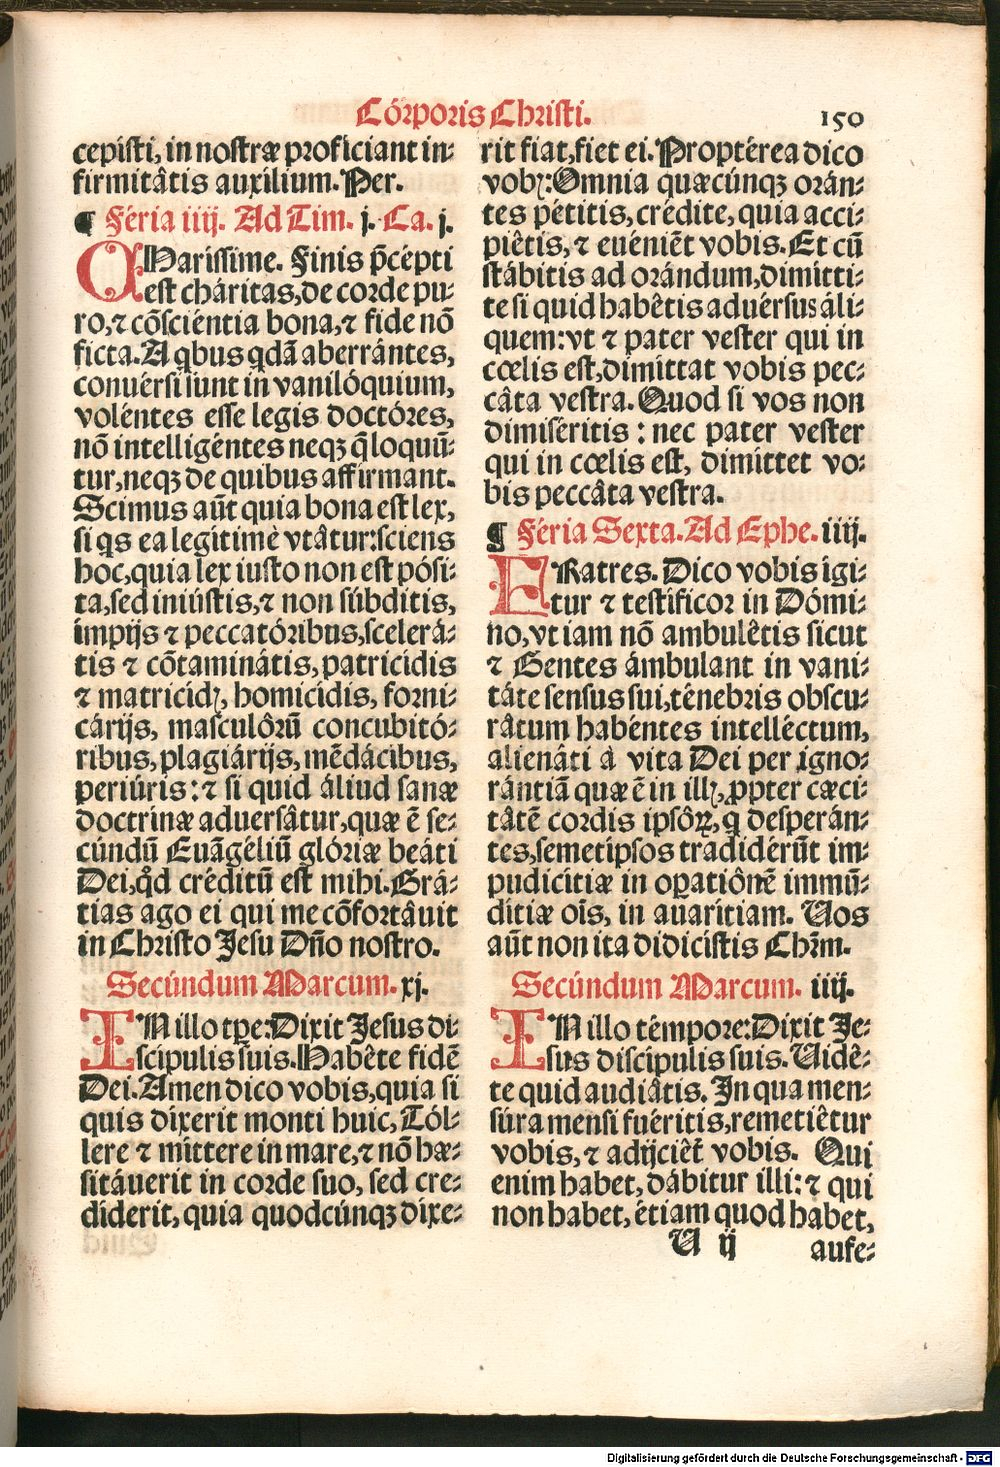 Córporis Christi.
150
cepisti, in nostræ proficiant in⸗
firmitâtis auxilium. Per.
¶ Féria iiij. Ad Tim. j. Ca. j.
CHarissime. Finis p̄cépti
est cháritas, de corde pu⸗
ro, ⁊ cōsciéntia bona, ⁊ fide nō
ficta. A qbus qdā aberrántes,
conuérsi sunt in vanilóquium,
voléntes esse legis doctóres,
nō intelligéntes neqꝫ q̄ loquū⸗
tur, neqꝫ de quibus affirmant.
Scimus aūt quia bona est lex,
si qs ea legítimè vtâtur: sciens
hoc, quia lex iusto non est pósi⸗
ta, sed iniústis, ⁊ non súbditis,
ímpijs ⁊ peccatóribus, scelerá⸗
tis ⁊ cōtaminátis, patricídis
⁊ matricídꝭ, homicídis, forni⸗
cárijs, masculôrū concubitó⸗
ribus, plagiárijs, mēdácibus,
periúris: ⁊ si quid áliud sanæ
doctrinæ aduersâtur, quæ ē se⸗
cúndū Euāgéliū glóriæ beáti
Dei, qd̛ créditū est mihi. Grá⸗
tias ago ei qui me cōfortâuit
in Christo Jesu Dño nostro.
Secúndum Marcum. xj.
IN illo tpe: Dixit Jesus di⸗
scípulis suis. Habête fidē
Dei. Amen dico vobis, quia si
quis díxerit monti huic, Tól⸗
lere ⁊ míttere in mare, ⁊ nō hæ⸗
sitáuerit in corde suo, sed cre⸗
díderit, quia quodcúnqꝫ díxe⸗
rit fiat, fiet ei. Proptérea dico
vobꝭ: Omnia quæcúnqꝫ orán⸗
tes pétitis, crédite, quia acci⸗
piêtis, ⁊ euéniēt vobis. Et cū
stábitis ad orándum, dimítti⸗
te si quid habêtis aduérsus áli⸗
quem: vt ⁊ pater vester qui in
cœlis est, dimíttat vobis pec⸗
câta vestra. Quod si vos non
dimiséritis: nec pater vester
qui in cœlis est, dimíttet vo⸗
bis peccâta vestra.
¶ Féria Sexta. Ad Ephe. iiij.
FRatres. Dico vobis ígi⸗
tur ⁊ testíficor in Dómi⸗
no, vt iam nō ambulêtis sicut
⁊ Gentes ámbulant in vani⸗
táte sensus sui, ténebris obscu⸗
râtum habéntes intelléctum,
alienáti à vita Dei per igno⸗
rántiā quæ ē in illꝭ, ꝓpter cæci⸗
tátē cordis ipsôꝝ, q desperán⸗
tes, semetípsos tradidérūt im⸗
pudicítiæ in oꝑatiônē immū⸗
dítiæ oĩs, in auarítiam. Uos
aūt non ita didicístis Chr̄m.
Secúndum Marcum. iiij.
IN illo témpore: Dixit Je⸗
sus discípulis suis. Uidê⸗
te quid audiâtis. In qua men⸗
súra mensi fuéritis, remetiêtur
vobis, ⁊ adijciēt̛ vobis. Qui
enim habet, dábitur illi: ⁊ qui
non habet, étiam quod habet,
U ij aufe⸗
Digitalisierung gefördert durch die Deutsche Forschungsgemeinschaft - DFG